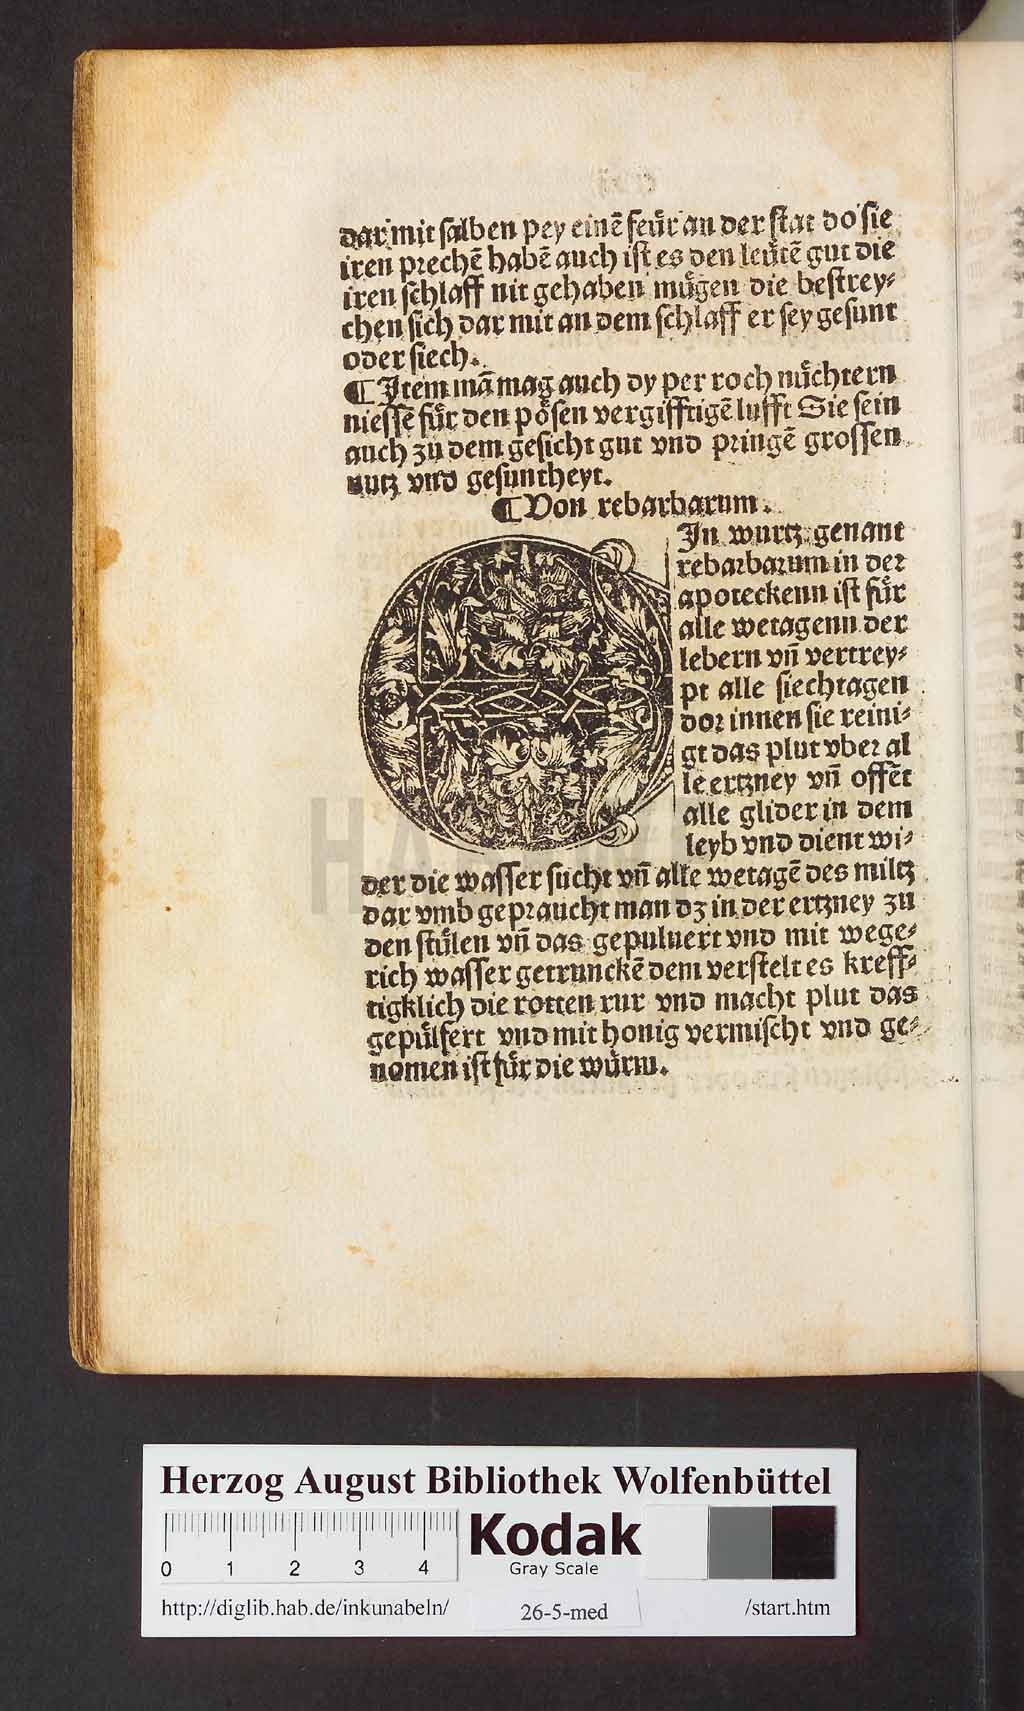 dar mit salben pey einē feűr an der stat do sie
iren prechē habē auch ist es den leütē gut die
iren schlaff nit gehaben mügen die bestrey⸗
chen sich dar mit an dem schlaff er sey gesunt
oder siech.
¶ Item mā mag auch dy per roch nüchtern
niessē für den pösen vergifftigē lufft Sie sein
auch zu dem gesicht gut vnd pringē grossen
nutz vnd gesuntheyt.
¶ Von rebarbarum.
E
In wurtz genant
rebarbarum in der
apoteckenn ist für
alle wetagenn der
lebern vn̄ vertrey⸗
pt alle siechtagen
dor innen sie reini⸗
gt das plut vber al
le ertzney vn̄ offēt
alle glider in dem
leyb vnd dient wi⸗
der die wasser sucht vn̄ alle wetagē des miltz
dar vmb gepraucht man dz in der ertzney zu
den stülen vn̄ das gepuluert vnd mit wege⸗
rich wasser getrunckē dem verstelt es kreff⸗
tigklich die rotten rur vnd macht plut das
gepülfert vnd mit honig vermischt vnd ge⸗
nomen ist für die würm.
HAB
Herzog August Bibliothek Wolfenbüttel
0 1 2 3 4
Kodak
Gray Scale
http://diglib.hab.de/inkunabeln/ 26-5-med /start.htm